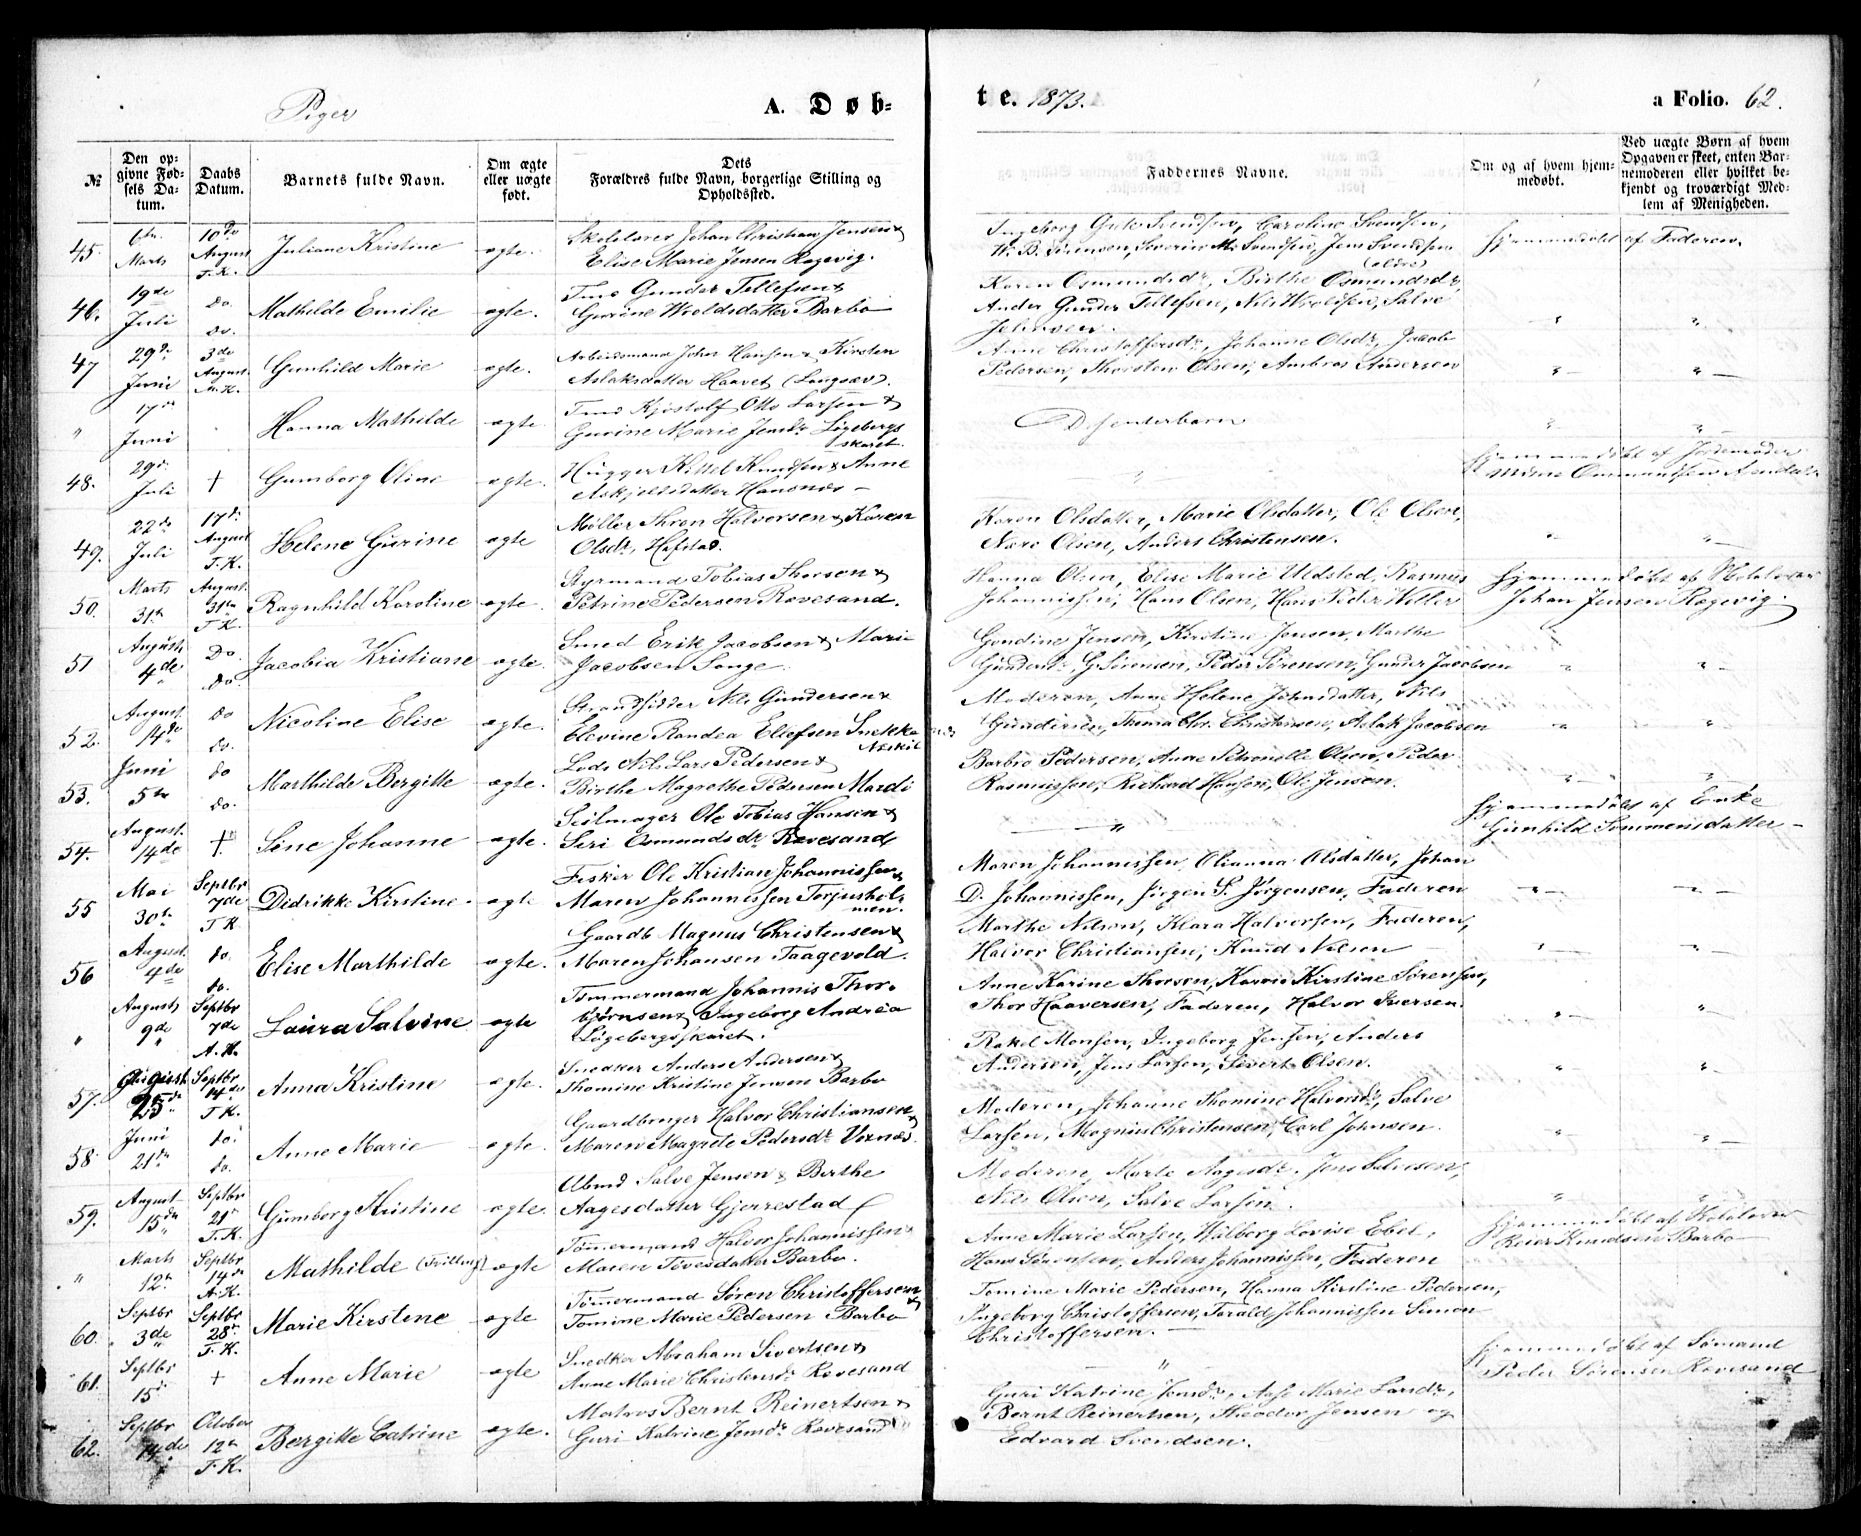 Piger
A. Døb-
te. 1873.
a Folio. 62.
№
Den op-
givne Fød-
sels Da-
tum.
Daabs
Datum.
Barnets fulde Navn.
Om ægte
eller uægte
født.
Dets
Forældres fulde Navn, borgerlige Stilling og
Opholdssted.
Faddernes Navne.
Om og af hvem hjem-
medøbt.
Ved uægte Børn af hvem
Opgaven er skeet, enten Bar-
nemoderen eller hvilket be-
kjendt og troværdigt Med-
lem af Menigheden.
45. 6te Marts 10de August T.K. Juliane Kristine ægte. Skolelærer Johan Christian Jensen &
Elise Marie Jensen Ragevig.
Svendsen, Caroline Svendsen,
W. B. Sørensen, Severin M. Svendsen, Jens Svendsen
(ældre)
Hjemmedøbt af Faderen.
46. 19de Juli Do. Do. Mathilde Emilie ægte. Tmd Gunder Tellefsen &
Gurine Wroldsdatter Barbo
Karen Osmundsdr, Birthe Osmundsdr,
Gunder Tellefsen, Nils Wroldsen, Salve
Johnsen.
47 29de Juni 3de August A.K. Gunhild Marie ægte. Arbeidsmand John Hansen & Kirsten
Aslaksdatter Haavet (Langsæv).
Anne Christoffersdr, Johanne Olsdr, Jacob
Pedersen, Thorsten Olsen, Ambros Andersen
" 17de Juni Hanna Mathilde ægte Tmd Kjøstolf Otto Larsen &
Gurine Marie Jensdr Løgebergs
skaret.
Dissenterbarn
48. 29de Juli † Gumborg Oline ægte. Hugger Kittel Knudsen & Anne
Askjeldsdatter Hansnæs
Hjemmedøbt af Jordemoder
49. 22de Juli 17de August T.K. Helene Gurine ægte Møller Thron Halvorsen & Karen
Olsdr, Hafstad.
Karen Olsdatter, Marie Olsdatter, Ole Olsen,
Nære Olsen, Anders Christensen.
50. Marts 31te August 31te T.K. Ragnhild Karoline ægte. Styrmand Tobias Thorsen &
Petrine Pedersen Revesand.
Hanna Olsen, Elise Marie Udsted, Rasmus
Johannissen, Hans Olsen, Hans Peder Weller
Hjemmedøbt af Skolelærer
Johan Jensen Ragevig.
51 August 4de Do. Do. Jacobia Kristiane ægte. Smed Erik Jacobsen & Marie
Jacobsen Songe.
Gundine Jensen, Kirstine Jensen, Marthe
G. Sørensen, Peder Sørensen, Gunder Jacobsen
52. August 14de Do Do. Nicoline Elise ægte. Strandsidder Nils Gundersen &
Elevine Randea Ellefsen Snekke
Moderen, Anne Helene Johnsdatter, Nils
Gundersen, Christensen, Aslak Jacobsen
53. Juni 5te Do Do. Marthilde Bergitte ægte. Lods Nils Lars Pedersen &
Birthe Magrethe Pedersen Mardø
Barbro Pedersen, Anne Petronelle Olsen, Peder
Rasmussen, Richard Hansen, Ole Jensen.
54. August 14de † Sine Johanne ægte. Seilmager Ole Tobias Hansen &
Siri Osmundsdr Revesand
Hjemmedøbt af Enke
Gunhild Sommensdatter
55 Mai 30te Septbr 7de T.K. Didrikke Kirstine ægte Fisker Ole Kristian Johannissen &
Maren Johannissen Torjushol-
men.
Maren Johannissen, Olianna Olsdatter, Johan
D. Johannissen, Jørgen S. Jørgensen, Faderen
56 August 4de Do. Do. Elise Marthilde ægte. Gaardb Magnus Christensen &
Maren Johansen Taagevold.
Marthe Nilsen, Klara Halvorsen, Faderen,
Halvor Christiansen, Knud Nilsen
" August 9de Septbr 7de A.K. Laura Salvine ægte Tømmermand Johannis Thor-
bjørnsen & Ingeborg Andrea
Løgebergsskaret.
Anne Karine Thorsen, Karen Kirstine Sørensen,
Thor Haaversen, Faderen, Halvor Iversen.
57. August 25de Septbr 14de T.K. Anna Kristine ægte. Snedker Anders Andersen &
Thomine Kristine Jensen Barbo
Rakel Monsen, Ingeborg Jensen, Anders
Andersen, Jens Larsen, Sivert Olsen.
58 Juni 21de Do. Do. Anne Marie ægte. Gaardbruger Halvor Christiansen &
Maren Magrete Pedersdr Vernæs.
Moderen, Johanne Thomine Halvorsdr, Salve
Larsen, Magnus Christensen, Carl Johnsen.
59. August 15de Septbr 21de T.K. Gumborg Kristine ægte. Abmd Salve Jensen & Berthe
Aagesdatter Gjerrestad
Moderen, Marte Aagesdr. Jens Salvesen,
Nils Olsen, Salve Larsen.
" Marts 12te Septbr 14de A.K. Mathilde (Tvilling) ægte Tømermand Halvor Johannissen &
Maren Tovesdatter Barbo.
Anne Marie Larsen, Wilborg Lovise Ebel,
Hans Sørensen, Anders Johannissen, Faderen
Hjemmedøbt af Skolelærer
Reier Knudsen Barbo
60. Septbr 3de Septbr 28de T.K. Marie Kirstene ægte Tømermand Søren Christoffersen &
Tomine Marie Pedersen Barbo
Tomine Marie Pedersen, Hanna Kirstine Pedersen,
Ingeborg Christoffersen, Tarald Johannissen Simon
Christoffersen.
61. Septbr 15de † Anne Marie ægte Snedker Abraham Sivertsen &
Anne Marie Christensdr Revesand
Hjemmedøbt af Sømand
Peder Sørensen Revesand
62. Septbr 14de October 12te T.K. Bergitte Catrine ægte. Matros Bernt Reinertsen &
Guri Katrine Jensdr Revesand
Guri Katrine Jensdr, Aase Marie Larsdr,
Bernt Reinertsen, Theodor Jensen og
Edvard Svendsen.